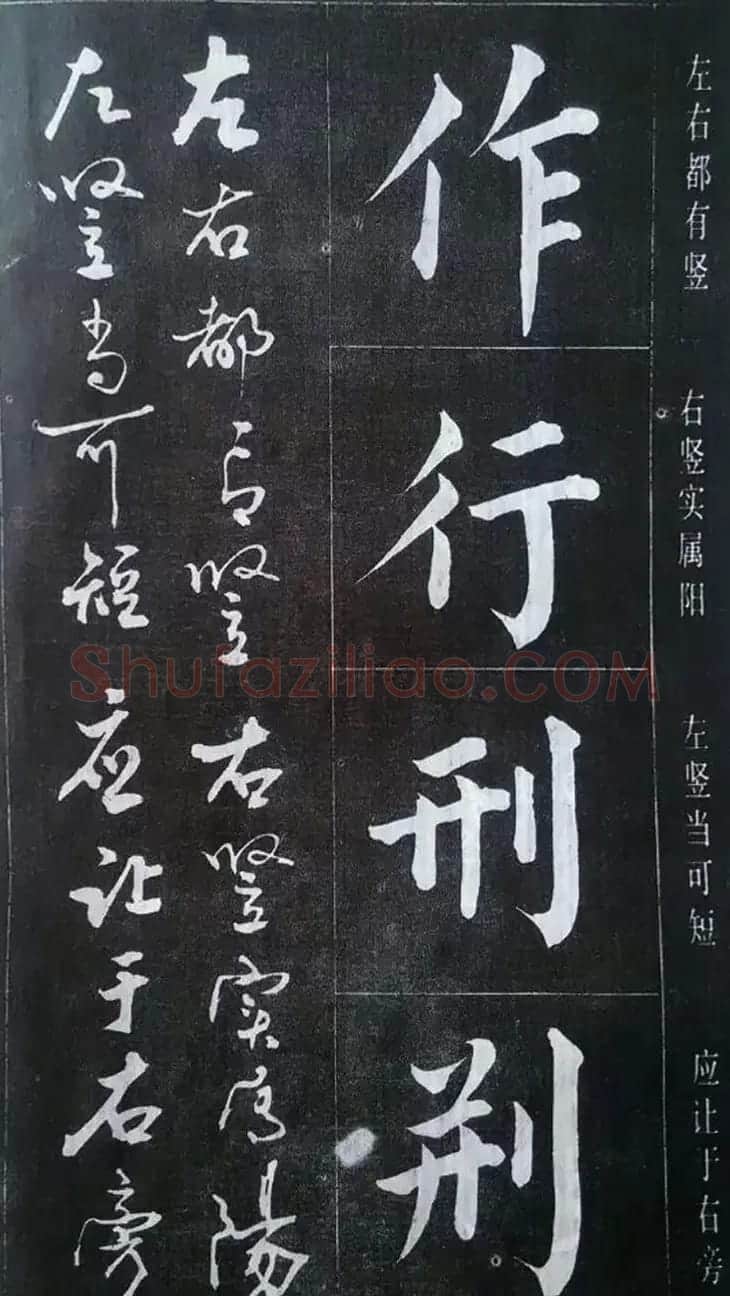 左右都有竖 右竖实属阳 左竖当可短 应让于右旁
作
行
刑
荆
左右都有竖右竖实属陽
左竖当可短应让于右旁
Shufaziliao.COM